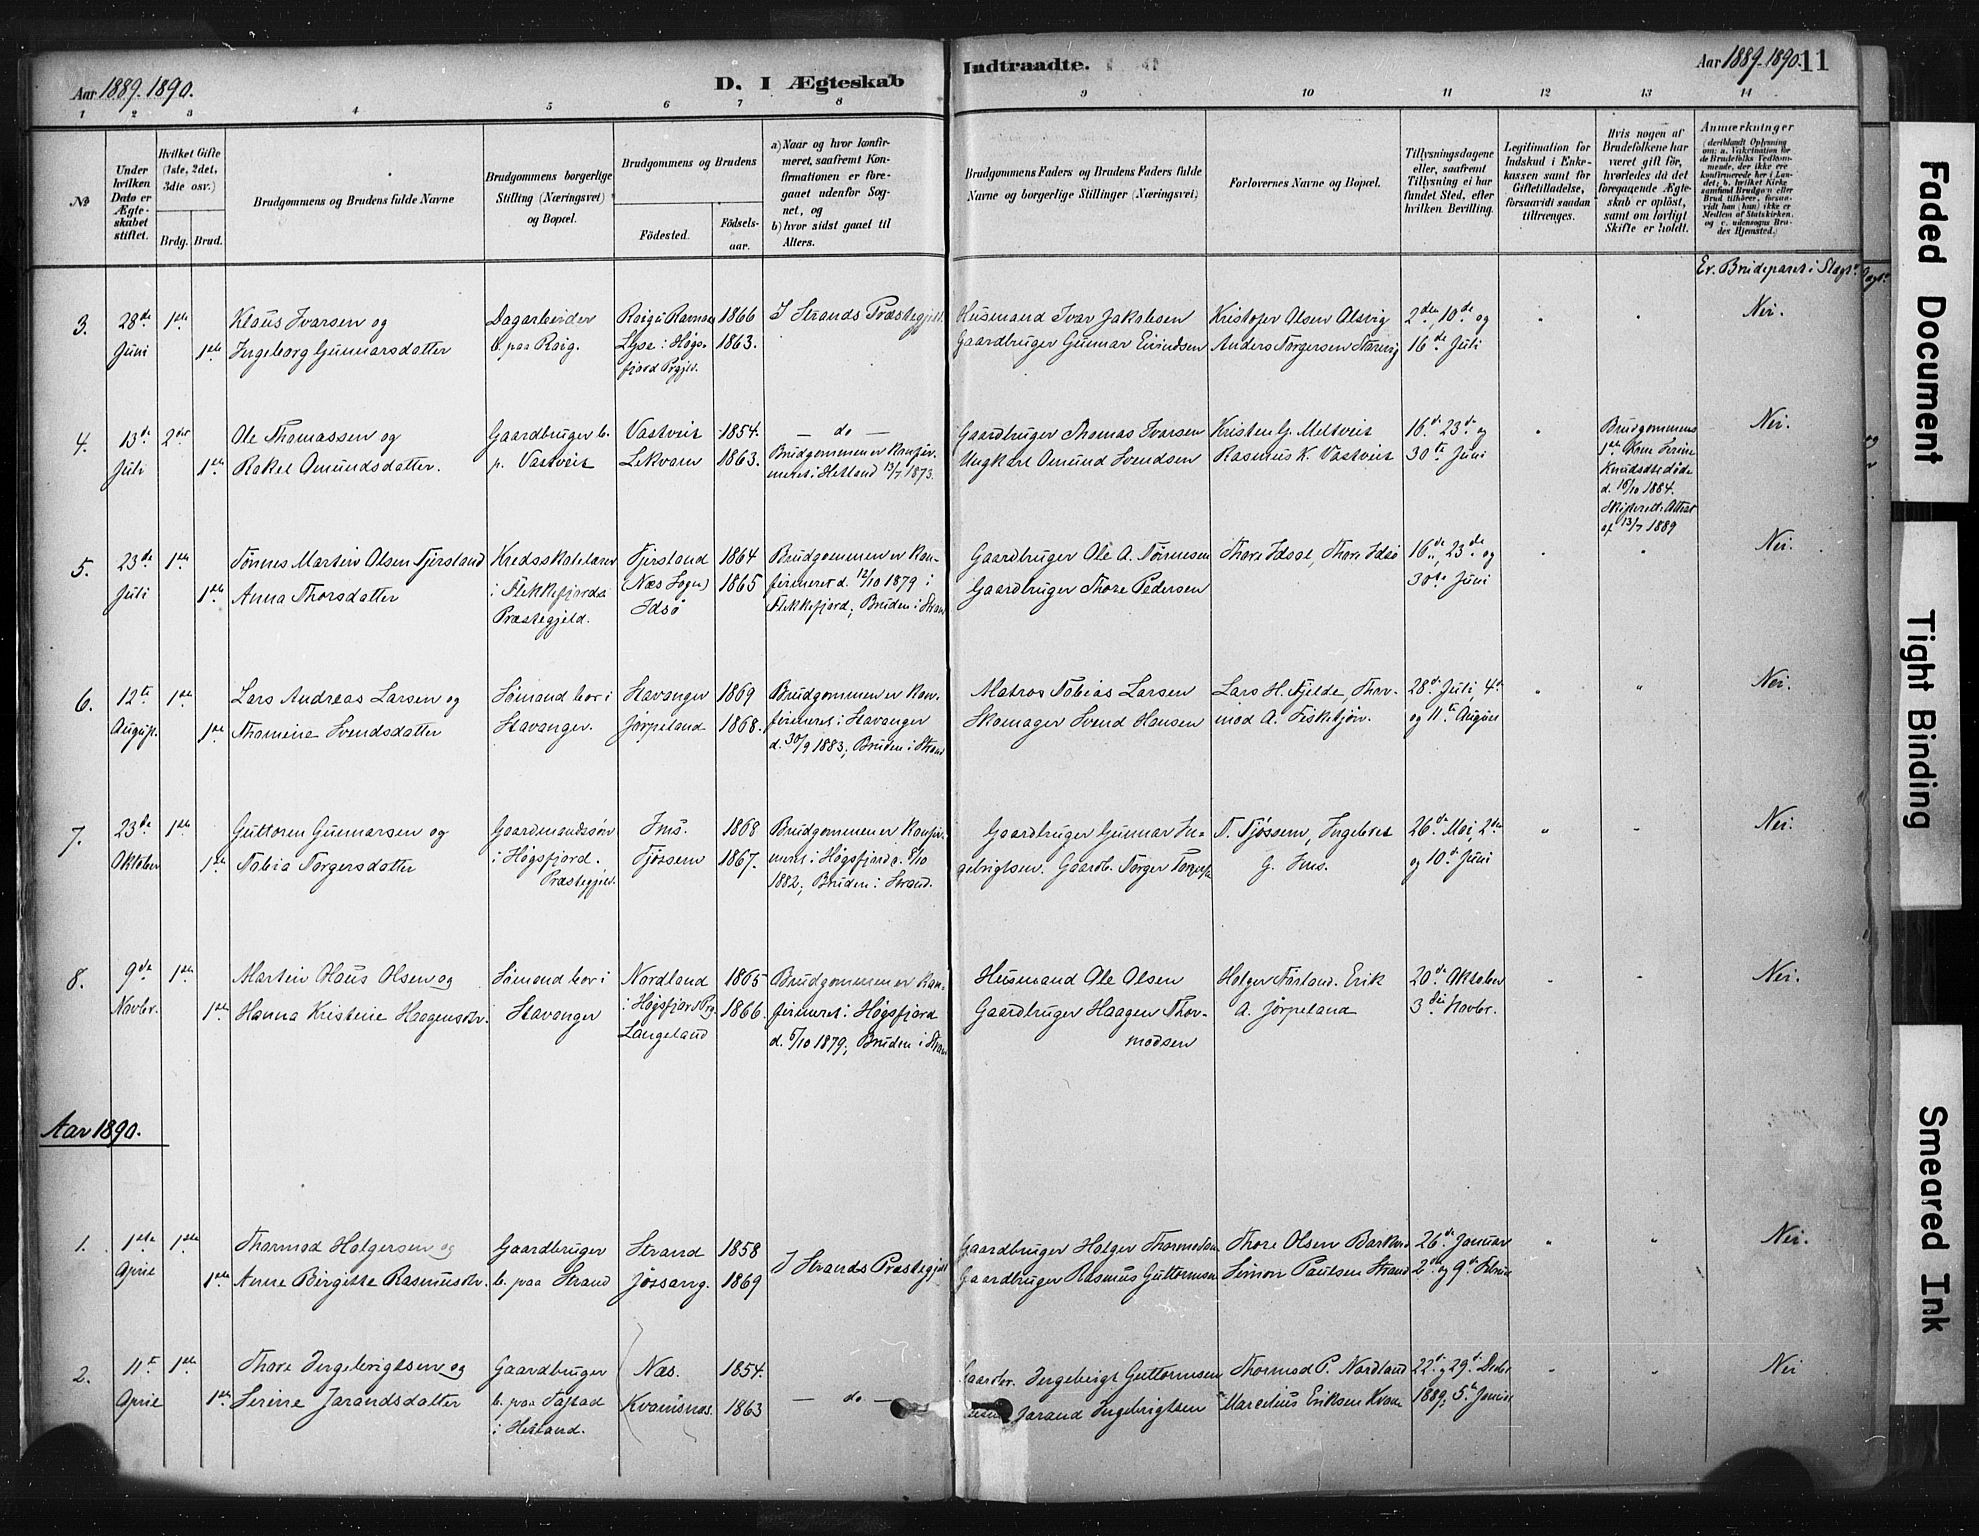 Aar 1889. 1890.
D. I Ægteskab Indtraadte.
Aar 1889. 1890. 11
1 2 3 4 5 6 7 8 9 10 11 12 13 14
No
Under hvilken Dato er Ægteskabet stiftet.
Hvilket Gifte (1ste, 2det, 3die osv.)
Brdg. Brud.
Brudgommens og Brudens fulde Navne
Brudgommens borgerlige Stilling (Næringsvei) og Bopæl.
Brudgommens og Brudens
Fødested.
Fødselsaar.
a) Naar og hvor konfirmeret, saafremt Konfirmationen er foregaaet udenfor Sognet, og
b) hvor sidst gaaet til Alters.
Brudgommens Faders og Brudens Faders fulde Navne og borgerlige Stillinger (Næringsvei)
Forlovernes Navne og Bopæl.
Tillysningsdagene eller, saafremt Tillysning ei har fundet Sted, efter hvilken Bevilling.
Legitimation for Indskud i Enkekassen samt for Giftetilladelse, forsaavidt saadan tiltrænges.
Hvis nogen af Brudefolkene har været gift før, hvorledes da det foregaaende Ægteskab er opløst, samt om lovligt Skifte er holdt.
Anmærkninger (deriblandt Oplysning om: a. Vakcination for de Brudefolks Vedkommende, der ikke ere konfirmerede her i Landet; b. hvilket Kirkesamfund Brudgom eller Brud tilhører, forsaavidt han (hun) ikke er Medlem af Statskirken, og c. udensogns Brudes Hjemsted.)
Er. Brudeparet i Slagt.
3. 28de Juni 1ste 1ste
Klaus Ivarsen og
Ingeborg Gunnarsdatter
Dagarbeider
b. paa Raig.
Lyse i Høgsfjord Prgjel.
1866
1863.
I Strands Præstegjeld.
Husmand Ivar Jakobsen
Gaardbruger Gunnar Eivindsen
Kristofer Olsen Alsvig
Anders Torgersen
2den, 10de og
16de Juli
" "
Nei.
4. 13de Juli 2det 1ste
Ole Thomassen og
Rakel Omundsdatter.
Gaardbruger b.
p. Vastveit
Vastveit
Lekvam
1854.
1863.
— do —
Brudgommen er Konfirmeret i Hetland 13/7 1873.
Gaardbruger Thomas Ivarsen
Ungkarl Omund Svendsen
Kristen G. Meltveit
Rasmus K. Vastveit
16de 23de og
30te Juni
"
Brudgommens
1ste Kone Serine
Knudsdtr døde
d. 16/10 1884.
Skifteretts Attest
af 13/7 1889
Nei.
5. 23de Juli 1ste 1ste
Tønnes Martin Olsen Fjersland
Anna Thorsdatter
Kredsskolelærer
i Flekkefjords
Præstegjeld.
Fjersland
(Næs Sogn)
Idsø
1864
1865
Brudgommen er Konfirmeret d. 12/10 1879 i
Flekkefjord; Bruden i Strand
Gaardbruger Ole A. Tønnesen
Gaardbruger Thore Pedersen
Thore Idsøe, Thore Idsø
16de, 23de og
30te Juni
" "
Nei.
6. 12te August. 1ste 1ste
Lars Andreas Larsen og
Thomine Svendsdatter
Sømand bor i
Stavanger.
Stavanger
Jørpeland
1869
1868.
Brudgommen er Konfirmeret i Stavanger
d. 30/9 1883; Bruden i Strand
Matros Tobias Larsen
Skomager Svend Hansen
Lars H. Fjelde, Thormod A. Fisketjøn.
28de Juli 4de
og 11te August
" "
Nei.
7. 23de Oktober 1ste 1ste
Guttorm Gunnarsen og
Tobia Torgersdatter
Gaardmandssøn
i Høgsfjord.
Præstegjeld.
Ims.
Tjøssem
1868
1867.
Brudgommen er Konfirmeret i Høgsfjord d. 8/10
1882; Bruden i Strand.
Gaardbruger Gunnar Ingebrigtsen. Gaardb. Torger
T. Tjøssem, Ingebret
G. Ims.
26de Mai, 2den
og 10de Juni
" "
Nei.
8. 9de Novbr. 1ste 1ste
Martin Olaus Olsen og
Hanna Kristine Haagensdtr.
Sømand bor i
Stavanger
Nordland
i Høgsfjord Prg.
Langeland
1865
1866.
Brudgommen er Konfirmeret i Høgsfjord
d. 5/10 1879; Bruden i Strand
Husmand Ole Olsen
Gaardbruger Haagen Thormodsen
Holger Førland. Erik
A. Jørpeland
20de Oktober
3die Novbr.
" "
Nei.
Aar 1890.
1. 1ste April 1ste 1ste
Thormod Holgersen og
Anne Birgitte Rasmusdtr.
Gaardbruger
b. paa Strand
Strand
Jøssang.
1858
1869
I Strands Præstegjeld
Gaardbruger Holger Thormodsen
Gaardbruger Rasmus Guttormsen
Thore Olsen Barkved
Simon Paulsen Strand
26de Januar
2den og 9de Februar
" "
Nei.
2. 11te April 1ste 1ste
Thore Ingebrigtsen og
Serine Jarandsdatter
Gaardbruger
b. paa Tastad
i Hetland.
Næs.
Kvamsnæs.
1854.
1863
— do —
Gaardbr. Ingebrigt Guttormsen
Jarand Ingebrigtsen
Thormod P. Nordland
Marcelius Eriksen Kvame
22de og 29de Decbr
1889, 5te Januar
" "
Nei
Faded Document
Tight Binding
Smeared Ink